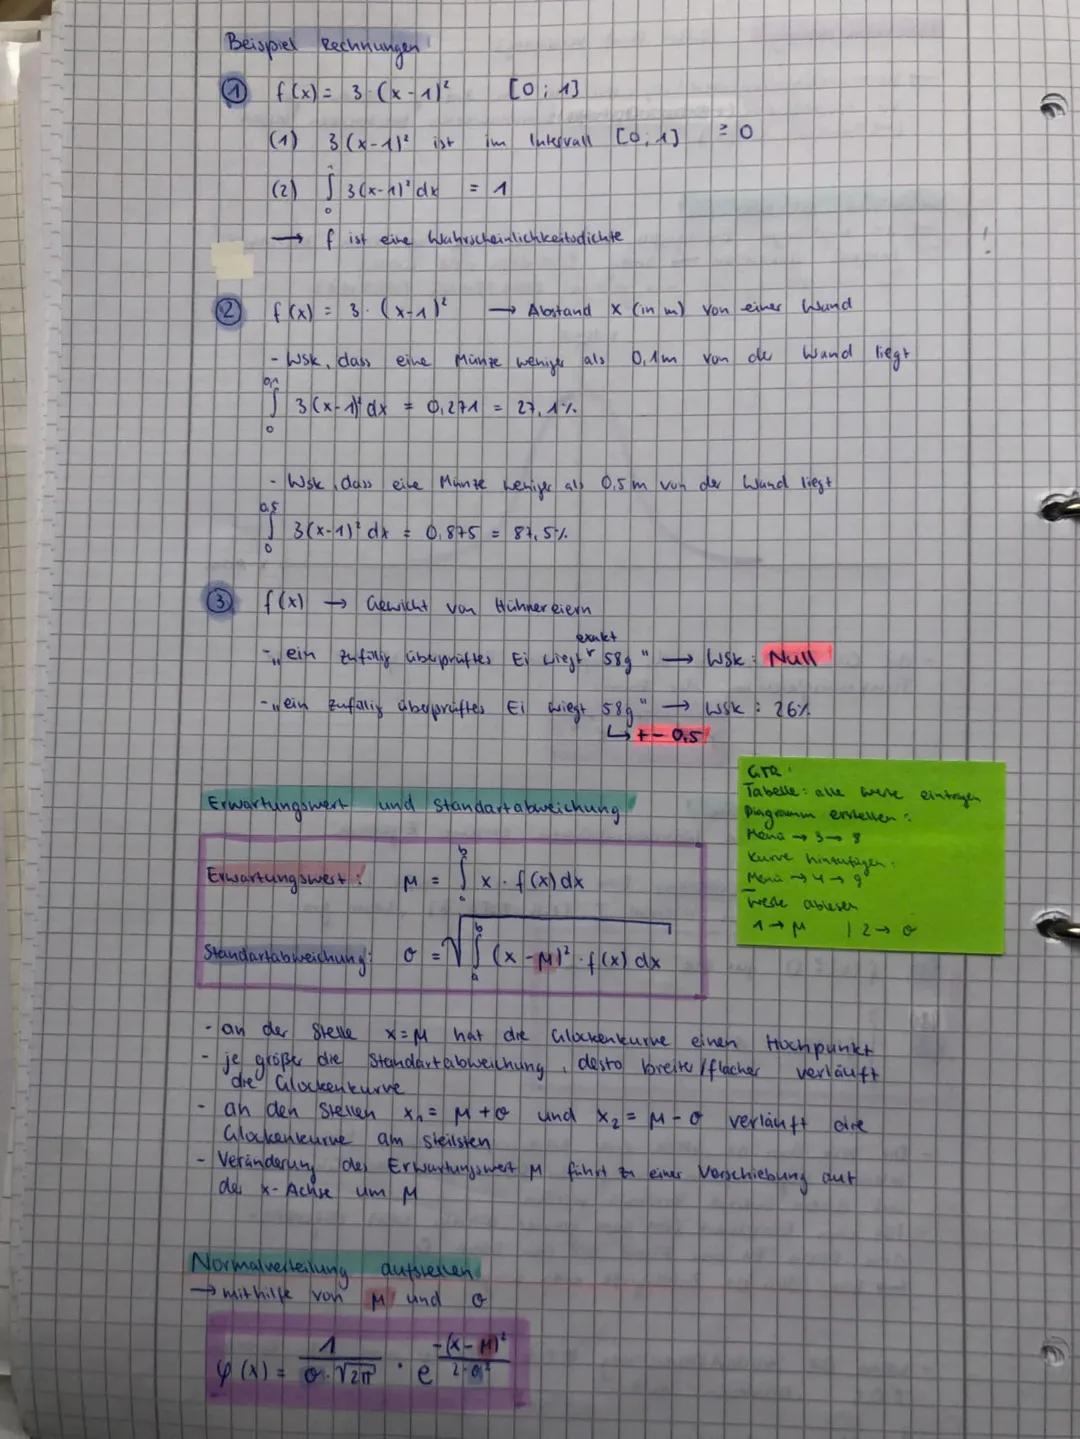 Beispiel Rechnungen
① f(x) = 3·(x-1)² [0;1]
(1) 3(x-1)² ist im Intervall [0;1] ≥ 0
(2) ∫₀¹ 3(x-1)² dx = 1
→ f ist eine Wahrscheinlichkeitsdichte
② f(x) = 3·(x-1)² → Abstand x (in m) von einer Wand
- Wsk, dass eine Münze weniger als 0,1m von der Wand liegt
∫₀^0,1 3(x-1)² dx = 0,271 = 27,1%
- Wsk, dass eine Münze weniger als 0,5m von der Wand liegt
∫₀^0,5 3(x-1)² dx = 0,875 = 87,5%
③ f(x) → Gewicht von Hühnereiern
exakt
- „ein zufällig überprüftes Ei wiegt 58g" → Wsk: Null
- „ein zufällig überprüftes Ei wiegt 58g" → Wsk: 26%
↳ +- 0,5
GTR:
Tabelle: alle Werte eintragen
Diagramm erstellen:
Menü → 3 → 8
Kurve hinzufügen:
Menü → 4 → 9
Werte ablesen
1 → μ | 2 → σ
Erwartungswert und Standartabweichung
Erwartungswert: μ = ∫ₐᵇ x · f(x) dx
Standartabweichung: σ = √(∫ₐᵇ (x-μ)² · f(x) dx)
- an der Stelle x = μ hat die Glockenkurve einen Hochpunkt
- je größer die Standartabweichung, desto breiter/flacher verläuft
die Glockenkurve
- an den Stellen x₁ = μ+σ und x₂ = μ-σ verläuft die
Glockenkurve am steilsten
- Veränderung des Erwartungswert μ führt zu einer Verschiebung auf
der x-Achse um μ
Normalverteilung aufstellen
→ mithilfe von μ und σ
φ(x) = 1/(σ·√2π) · e^(-(x-μ)²/(2·σ²))